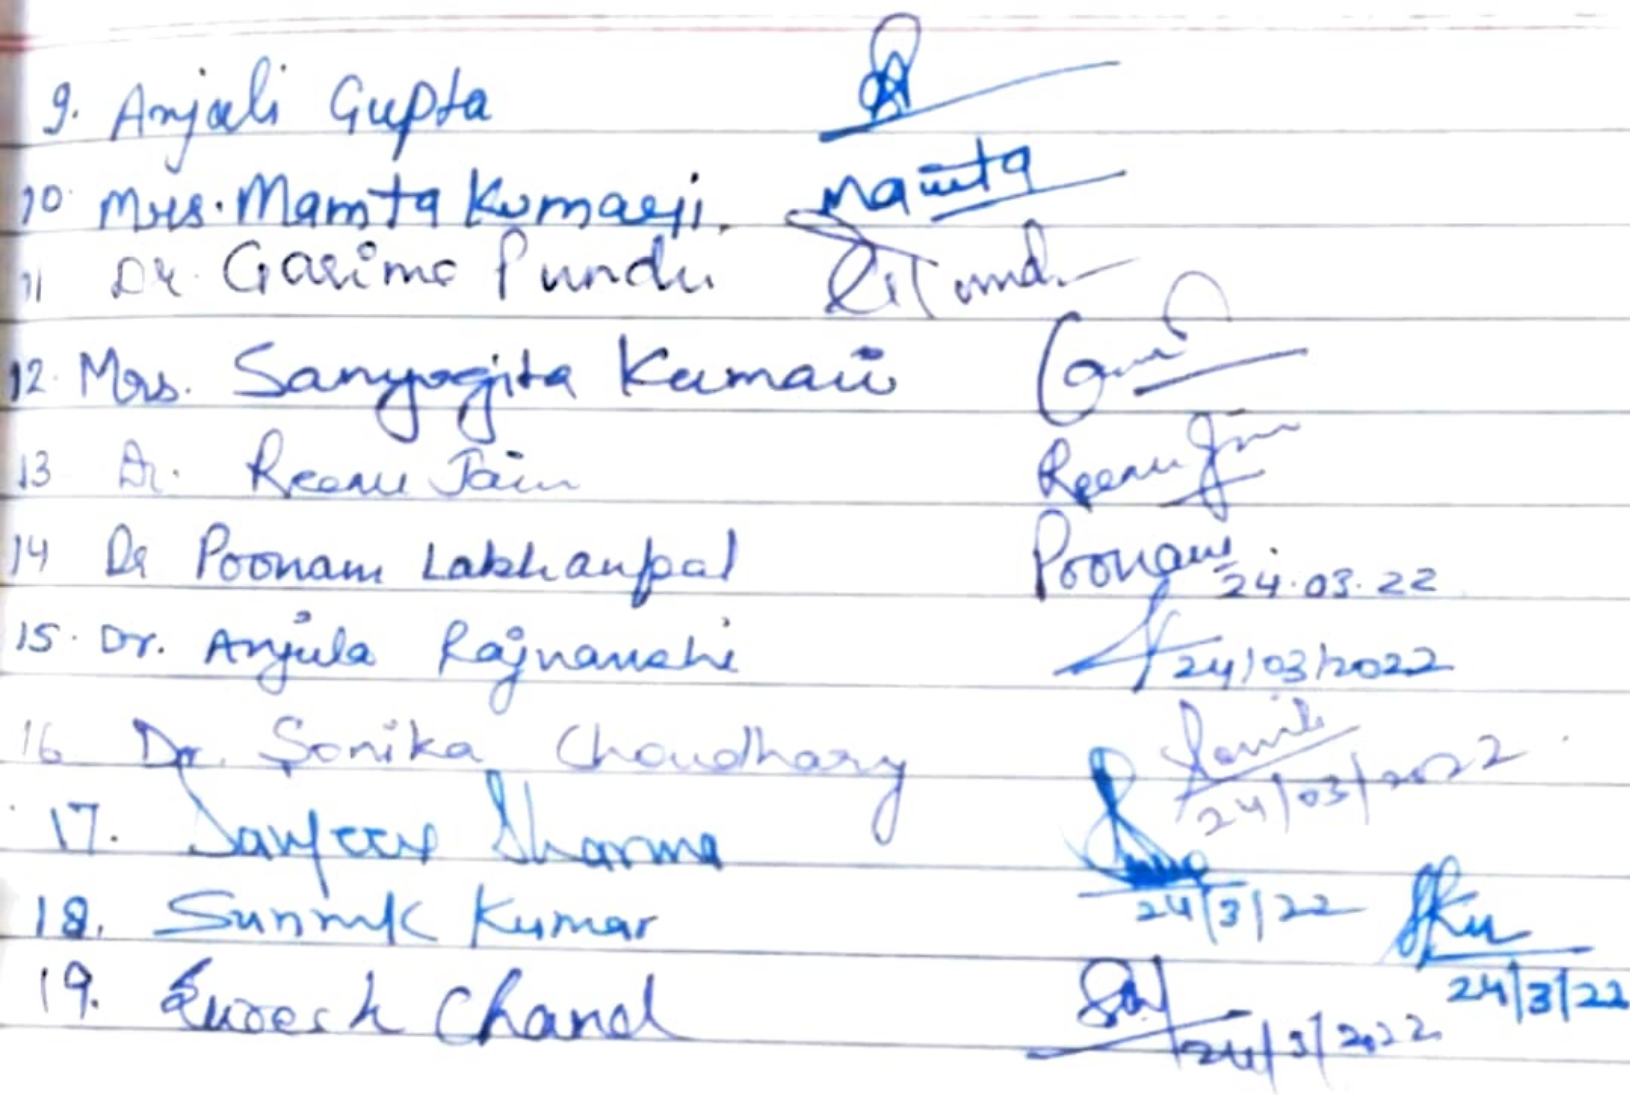 9. Anjali Gupta
10. Mrs. Mamta Kumari. Mamta
11 Dr. Garima Pundir
12. Mrs. Sanyogita Kumari
13 Dr. Reenu Jain Reenu Jain
14 Dr Poonam Lakhanpal Poonam 24.03.22
15. Dr. Anjula Rajvanshi 24/03/2022
16 Dr. Sonika Choudhary 24/03/2022
17. Sanjeev Sharma 24/3/22
18. Kumar SKu 24/3/22
19. Suresh Chand 24/3/2022